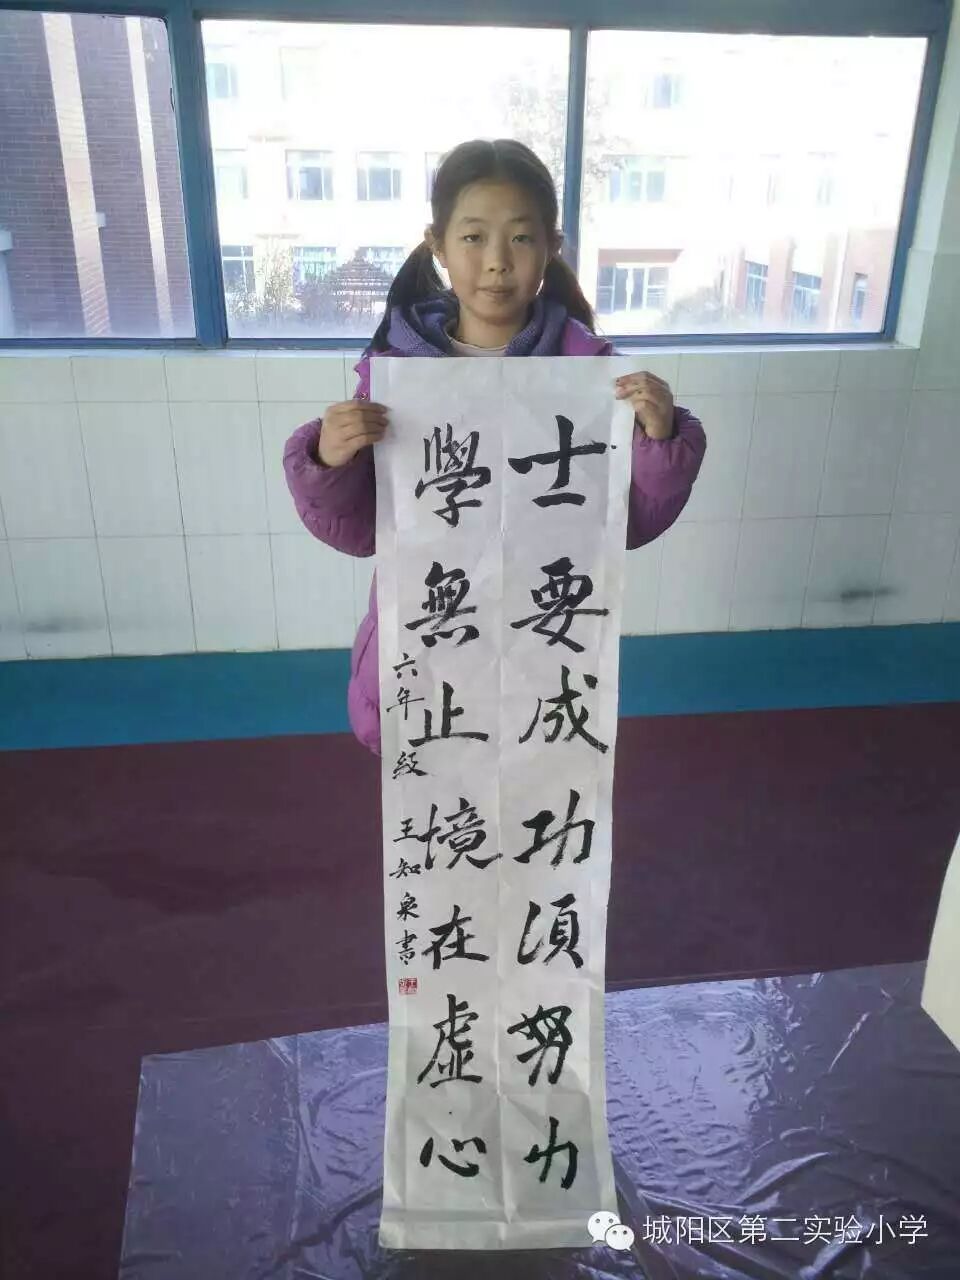 士要成功須努力
學無止境在虚心
六年级 王知泉書
城阳区第二实验小学